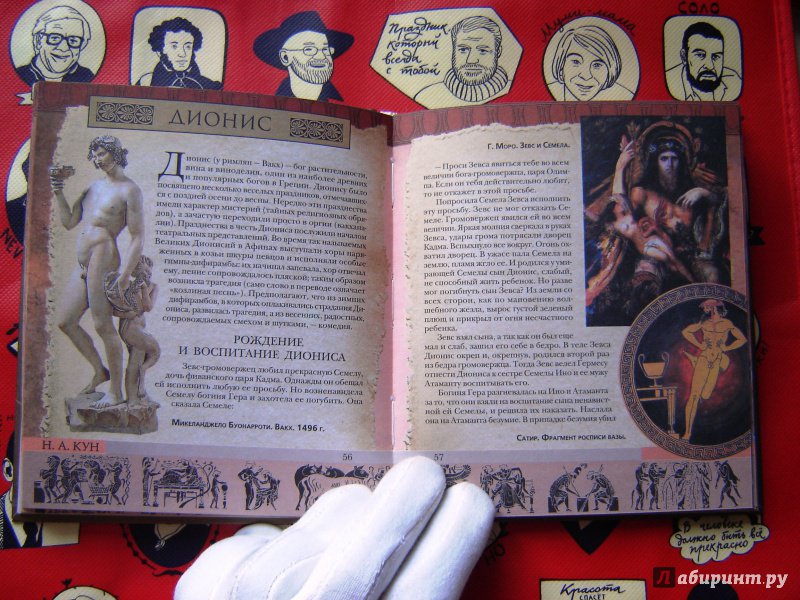 Праздник,
который
всегда
с тобой
Муми-мама
СОЛО
ДИОНИС
Дионис (у римлян – Вакх) – бог растительности,
вина и виноделия, один из наиболее древних
и популярных богов в Греции. Дионису было
посвящено несколько веселых праздников, отмечавшихся
с поздней осени до весны. Нередко эти празднества
имели характер мистерий (тайных религиозных обрядов),
а зачастую переходили просто в оргии (вакханалии).
Празднества в честь Диониса послужили началом
театральных представлений. Во время так называемых
Великих Дионисий в Афинах выступали хоры наряженных
в козьи шкуры певцов и исполняли особые
гимны-дифирамбы: их начинал запевала, хор отвечал
ему, пение сопровождалось пляской; таким образом
возникла трагедия (само слово в переводе означает
«козлиная песнь»). Предполагают, что из зимних
дифирамбов, в которых оплакивались страдания Диониса,
развилась трагедия, а из весенних, радостных,
сопровождаемых смехом и шутками, – комедия.
РОЖДЕНИЕ
И ВОСПИТАНИЕ ДИОНИСА
Зевс-громовержец любил прекрасную Семелу,
дочь фиванского царя Кадма. Однажды он обещал
ей исполнить любую ее просьбу. Но возненавидела
Семелу богиня Гера и захотела ее погубить. Она
сказала Семеле:
Микеланджело Буонарроти. Вакх. 1496 г.
Н. А. КУН
56
Г. Моро. Зевс и Семела.
– Проси Зевса явиться тебе во всем
величии бога-громовержца, царя Олимпа.
Если он тебя действительно любит,
то не откажет в этой просьбе.
Попросила Семела Зевса исполнить
эту просьбу. Зевс не мог отказать Семеле.
Громовержец явился ей во всем
величии. Яркая молния сверкала в руках
Зевса, удары грома потрясали дворец
Кадма. Вспыхнуло все вокруг. Огонь охватил
дворец. В ужасе пала Семела на
землю, пламя жгло ее. И родился у умирающей
Семелы сын Дионис, слабый,
не способный жить ребенок. Но разве
мог погибнуть сын Зевса? Из земли со
всех сторон, как по мановению волшебного
жезла, вырос густой зеленый
плющ и прикрыл от огня несчастного
ребенка.
Зевс взял сына, а так как он был еще
мал и слаб, зашил его себе в бедро. В теле Зевса
Дионис окреп и, окрепнув, родился второй раз
из бедра громовержца. Тогда Зевс велел Гермесу
отнести Диониса к сестре Семелы Ино и ее мужу
Атаманту воспитывать его.
Богиня Гера разгневалась на Ино и Атаманта
за то, что они взяли на воспитание сына ненавистной
ей Семелы, и решила их наказать. Наслала
она на Атаманта безумие. В припадке безумия убил
Сатир. Фрагмент росписи вазы.
57
В человеке
должно быть всё
прекрасно
Красота
спасёт
Лабиринт.ру